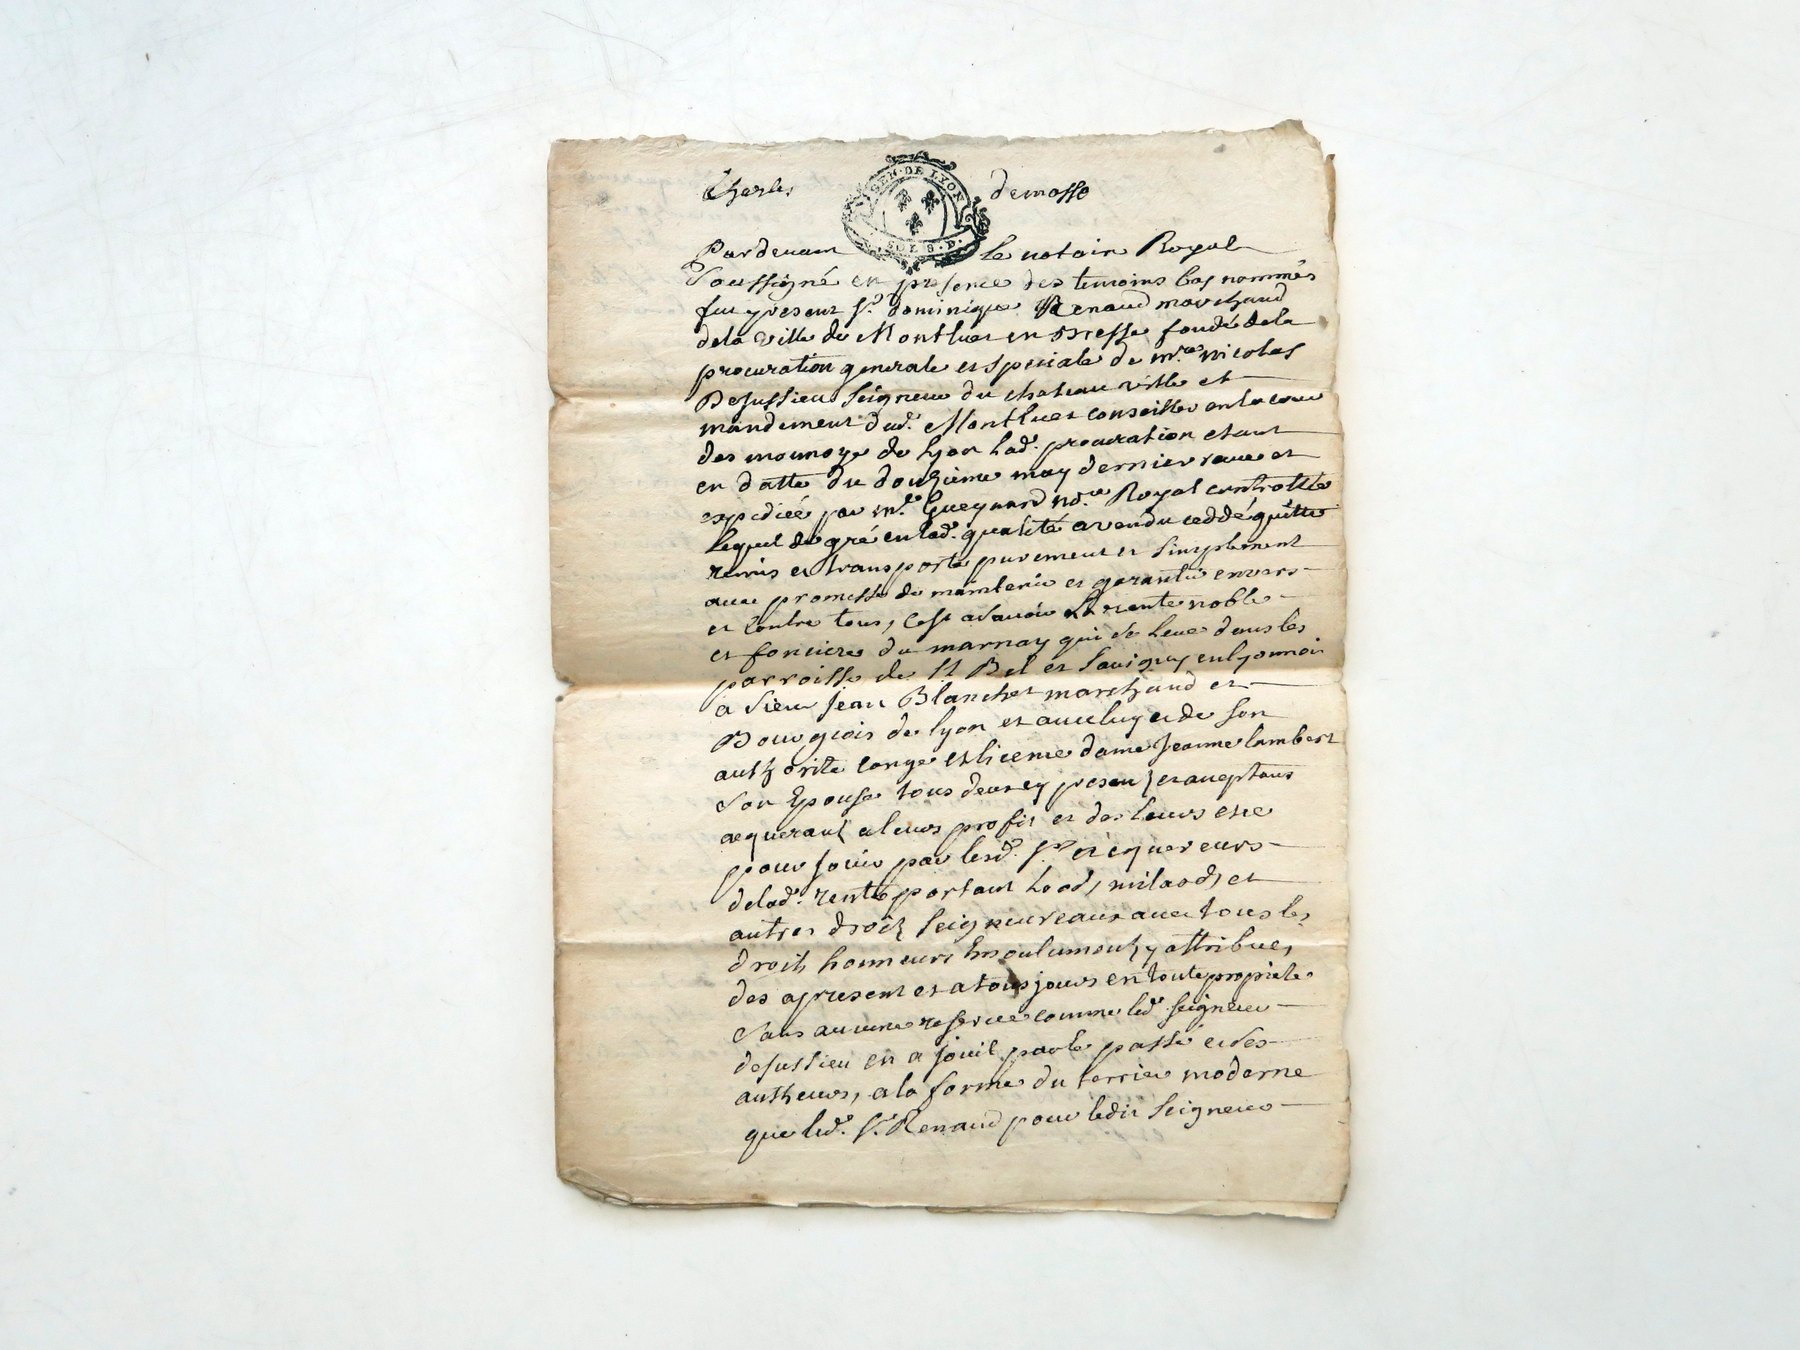 Charles demasso
GEN · DE LYON
SOLS · D.
Pardevant le notaire Royal
Soussigné en presence des temoins bas nommés
fut present Sr. dominique Renaud marchand
de la Ville de Montluet en Bresse fondé de la
procuration generale et speciale de mre. nicolas
Dejussieu Seigneur du chateau ville et
mandement dud. Montluet conseiller en la cour
des monnoye de lyon lad. procuration etant
en datte du douzieme may dernier receue et
expediée par me. Gueynard nore. Royal controllée
lequel de gré en lad. qualité a vendu ceddé quitte
remis et transporte purement et simplement
avec promesse de maintenir et garantir envers
et contre tous, Cest a savoir la rente noble
et fonciere du marnay qui se leve dans les
parroisse de St Bel et Savigny en lyonnois
a Sieur Jean Blanchet marchand et
Bourgeois de lyon et avec luy et de son
authorite conge et licence dame Jeanne lambert
Son Epouse tous deux cy presentz et acceptans
acquerantz a leurs profit et des leurs et ce
pour jouir par lesd. Sr et acquereurs
de lad. rente portant laods, milaods, et
autres droitz Seigneureaux avec tous les
droits honneurs Emoulumentz y attribues,
des apresent et a tousjours en toute propriete
Sans aucune reserve comme led. Seigneur
dejussieu en a jouit par le passé et ses
autheurs, a la forme du terrier moderne
que led. Sr. Renaud pour ledit Seigneur